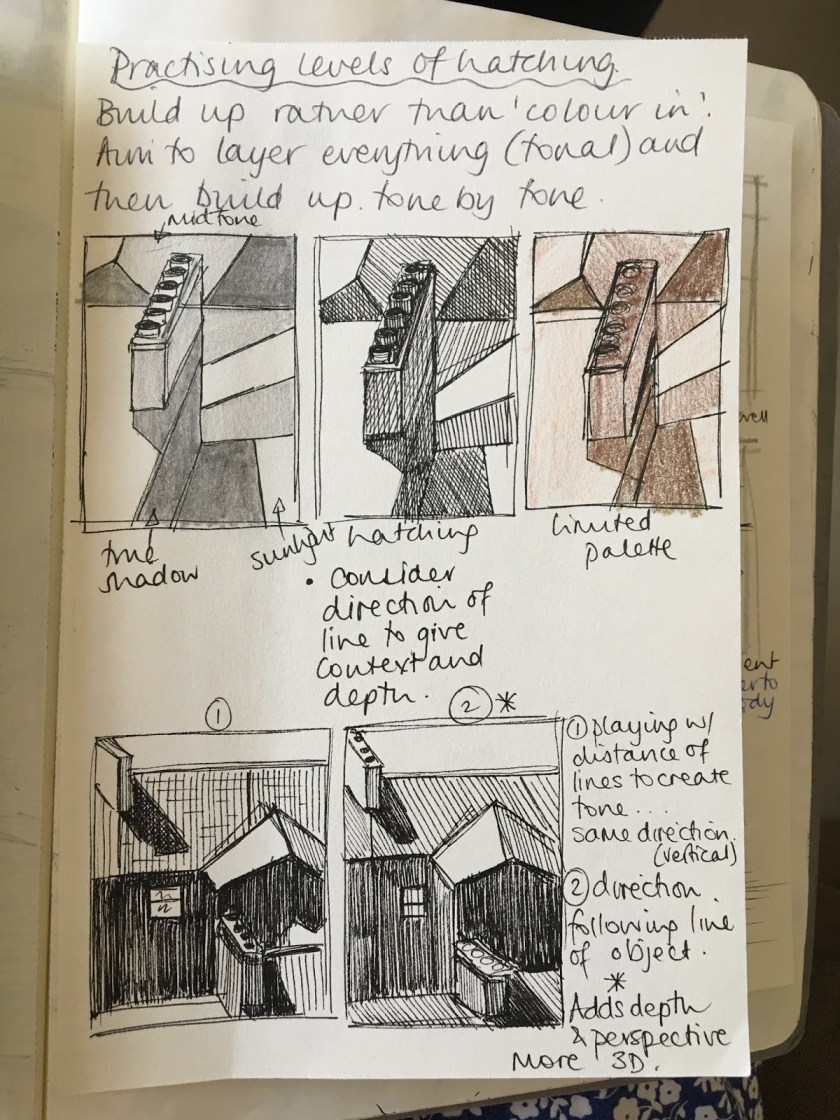 Practising levels of hatching.
Build up rather than 'colour in'.
Aim to layer everything (tonal) and
then build up. tone by tone.
midtone
true
shadow
sunlight
hatching
limited
palette
• Consider
direction of
line to give
context and
depth.
①
② *
① playing w/
distance of
lines to create
tone....
same direction.
(vertical)
② direction
following line
of object.
*
Adds depth
& perspective
More 3D.
well
ent
erto
ody